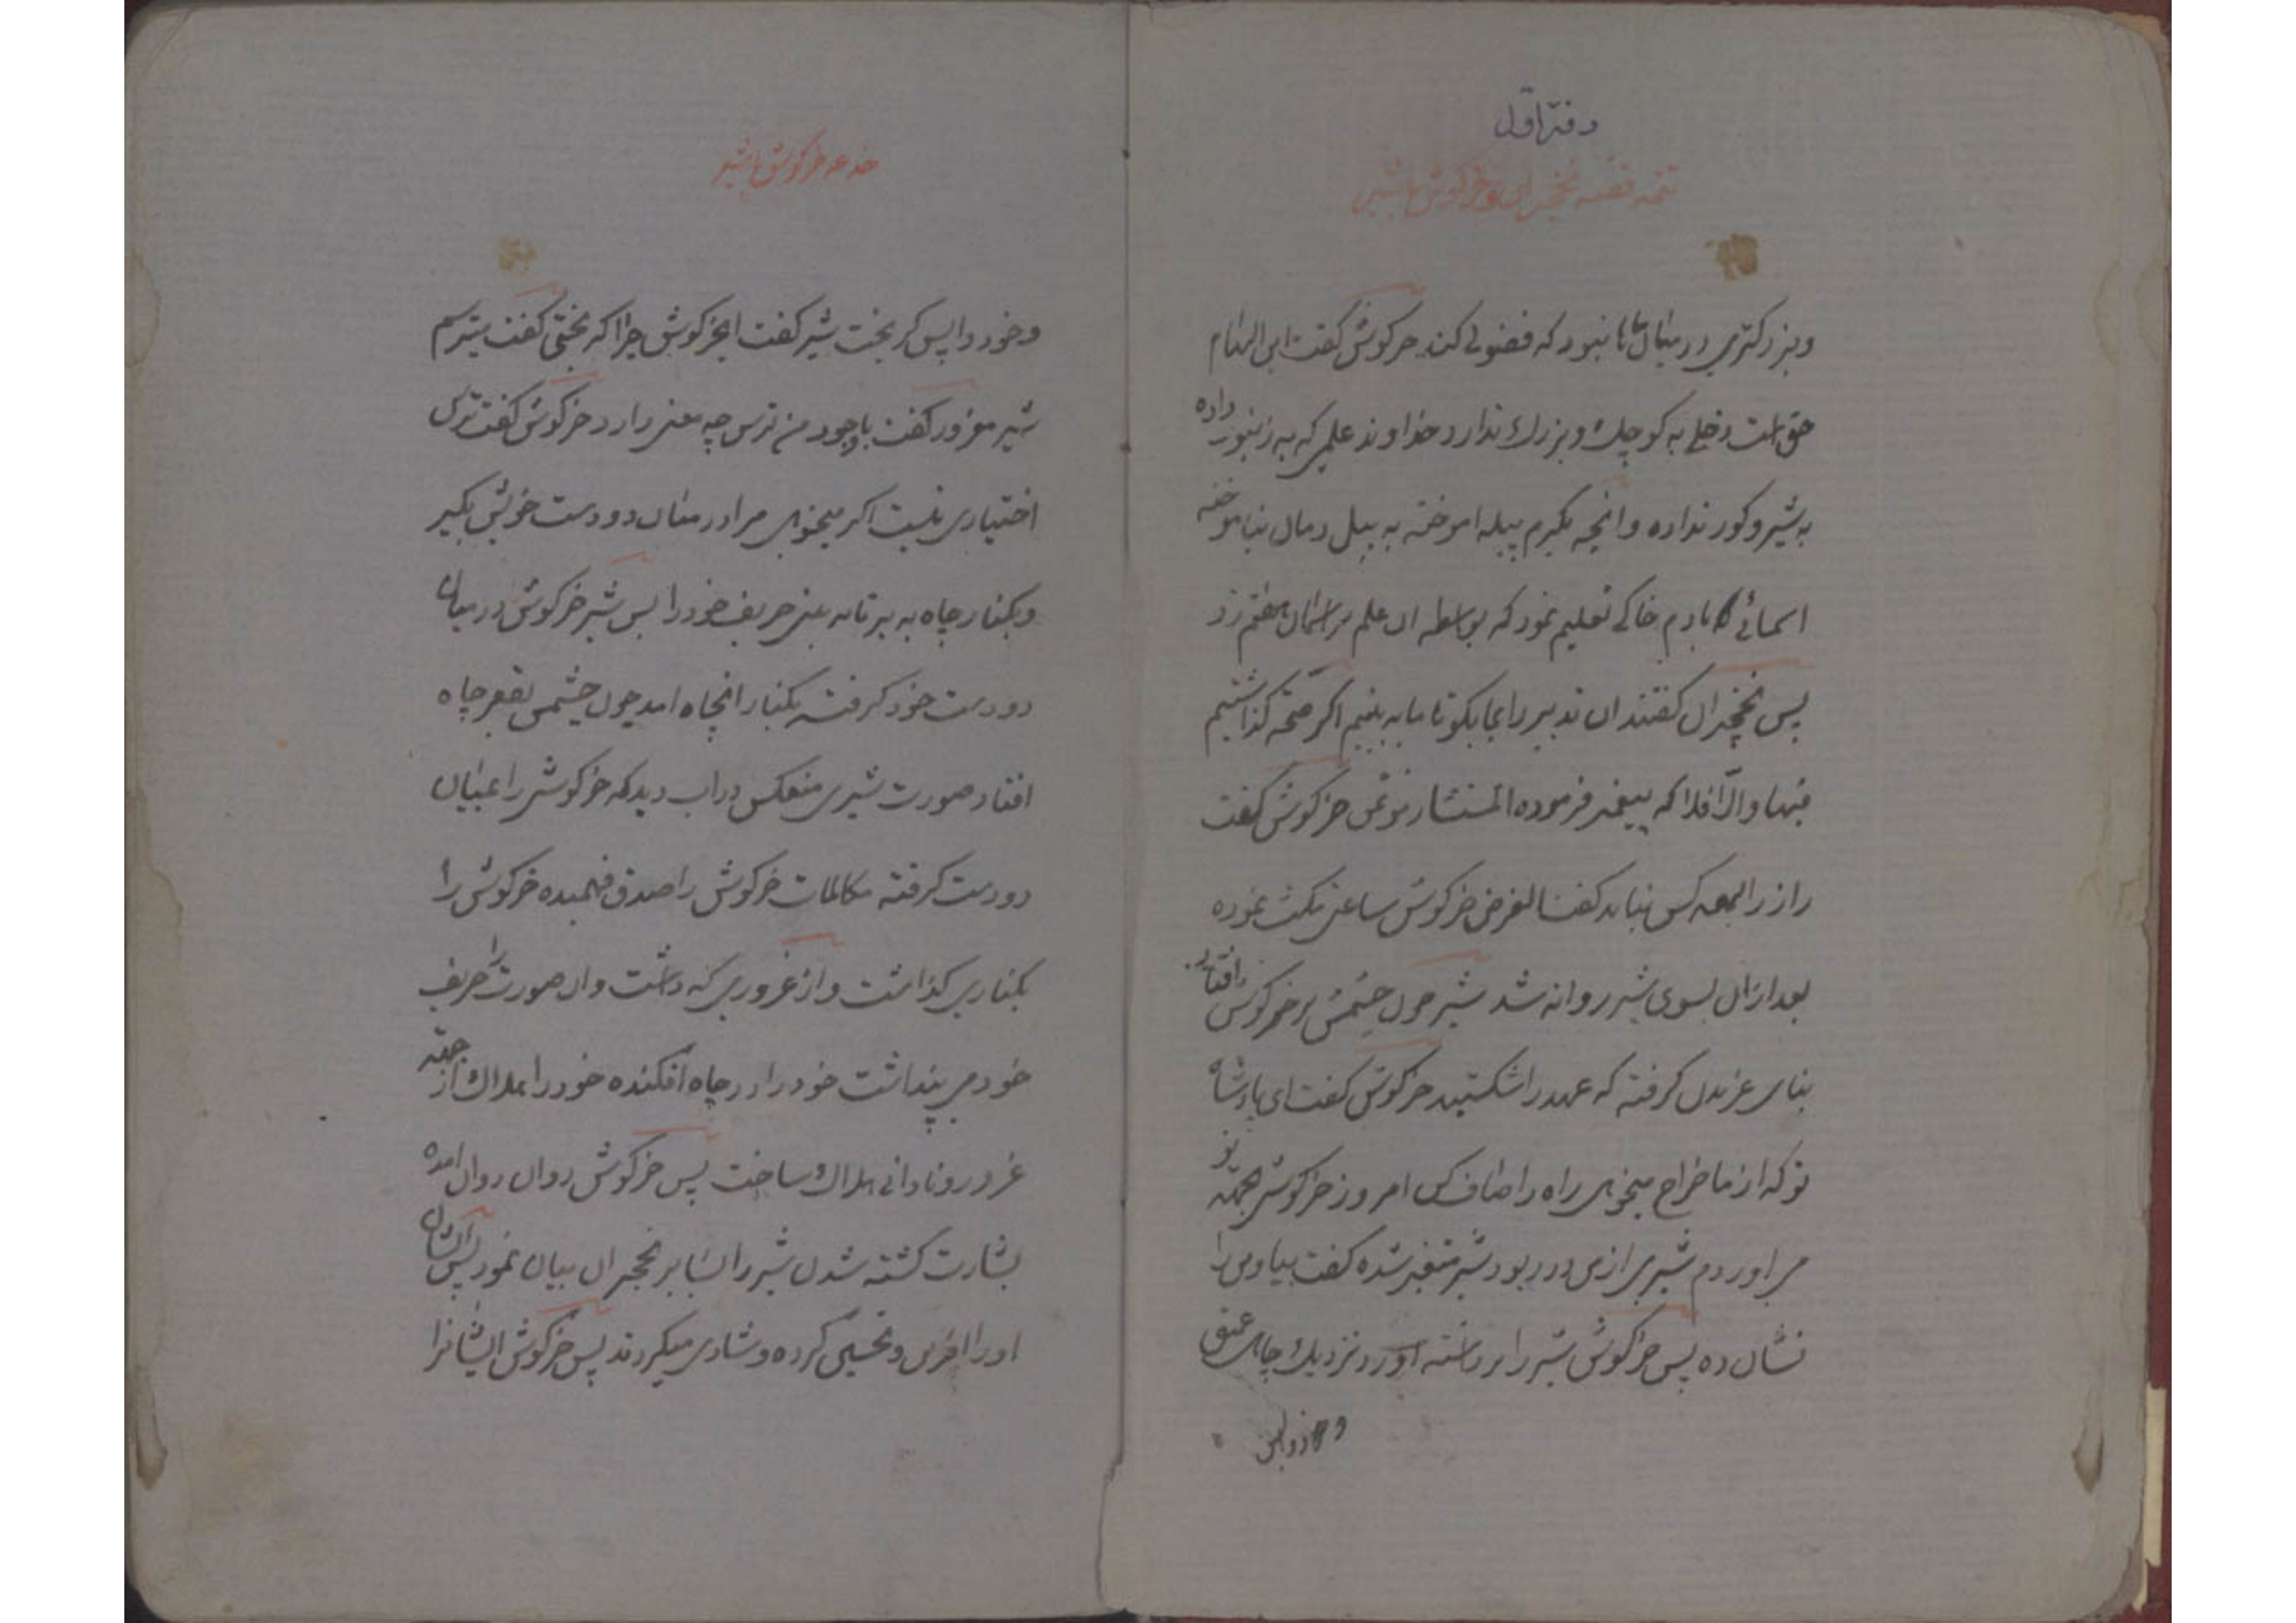 دفتر اوّل
تتمه قصه نخجیران و خرگوش با شیر
و بزرگتری در میان ما نبود که فضولی کند خرگوش گفت این الهام
حق است دخلی به کوچك و بزرك ندارد خداوند علمی که به زنبور داده
به شیر و کور نداده و انچه بکرم پیله اموخته به پیل دمان نیاموخته
اسمائی بادم خاکی تعلیم نمود که بواسطه ان علم بر اسمان هفتم زد
پس نخجیران گفتند ان تدبیر را بما بگو تا ما به بینیم اگر صحّه گذاشتیم
فبها والّا فلا که پیغمبر فرموده المستشار موتمن خرگوش گفت
راز را بهمه کس نباید گفت الغرض خرگوش ساعتی مکث نموده
بعد از ان بسوی شیر روانه شد شیر چون چشمش بر خرگوش افتاد
بنای غریدن گرفته که عهد را شکستید خرگوش گفت ای پادشاه
تو که از ما خراج میخواهی راه را صاف کن امروز خرگوشی بجهته تو
می اوردم شیری از من در ربود شیر متغیر شده گفت بیا و من را
نشان ده پس خرگوش شیر را برداشته اورد نزدیك چاهی عمیق
خدعه خرگوش با شیر
و خود واپس گریخت شیر گفت ایخرگوش چرا گریختی گفت میترسم
شیر مغرور گفت باوجود من ترس چه معنی دارد خرگوش گفت ترس
اختیاری نیست اگر میخواهی مرا در میان دو دست خویش بگیر
و بکنار چاه به بر تا به بینی حریف خود را پس شیر خرگوش در میان
دو دست خود گرفته بکنار انچاه امد چون چشمش بقعر چاه
افتاد صورت شیری منعکس در اب دید که خرگوشی را بمیان
دو دست گرفته مکالمات خرگوش را صدق فهمیده خرگوش را
بکناری گذاشت و از غروری که داشت و ان صورت را حریف
خود می پنداشت خود را در چاه افکنده خود را بهلاك از جهته
غرور و نادانی هلاك ساخت پس خرگوش روان روان امده
بشارت کشته شدن شیر را بنابر نخجیران بیان نمود پس ایشان
او را افرین و تحسین کرده و شادی میکردند پس خرگوش ایشانرا